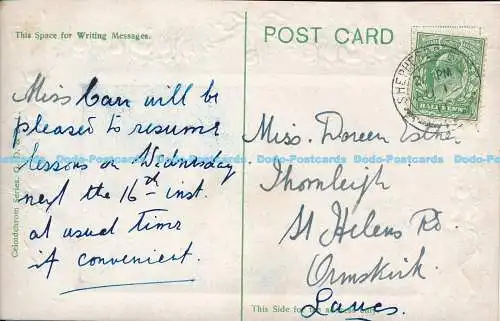 This Space for Writing Messages.
POST CARD
Miss Carr will be
pleased to resume
lessons on Wednesday
next the 16th inst.
at usual time
if convenient.
Miss. Doreen Esther
Thornleigh
St Helens Rd.
Ormskirk.
Lancs.
This Side for the address only.
HALFPENNY
Dodo-Postcards Dodo-Postcards Dodo-Postcards Dodo-Postcards Dodo-Postcards